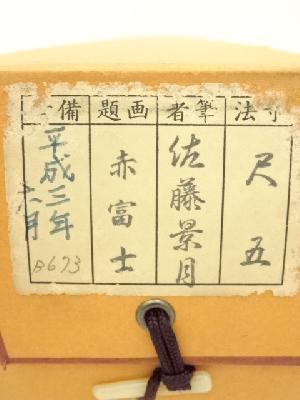 寸法
尺五
筆者
佐藤景月
画題
赤富士
備
平成三年
六月
B673